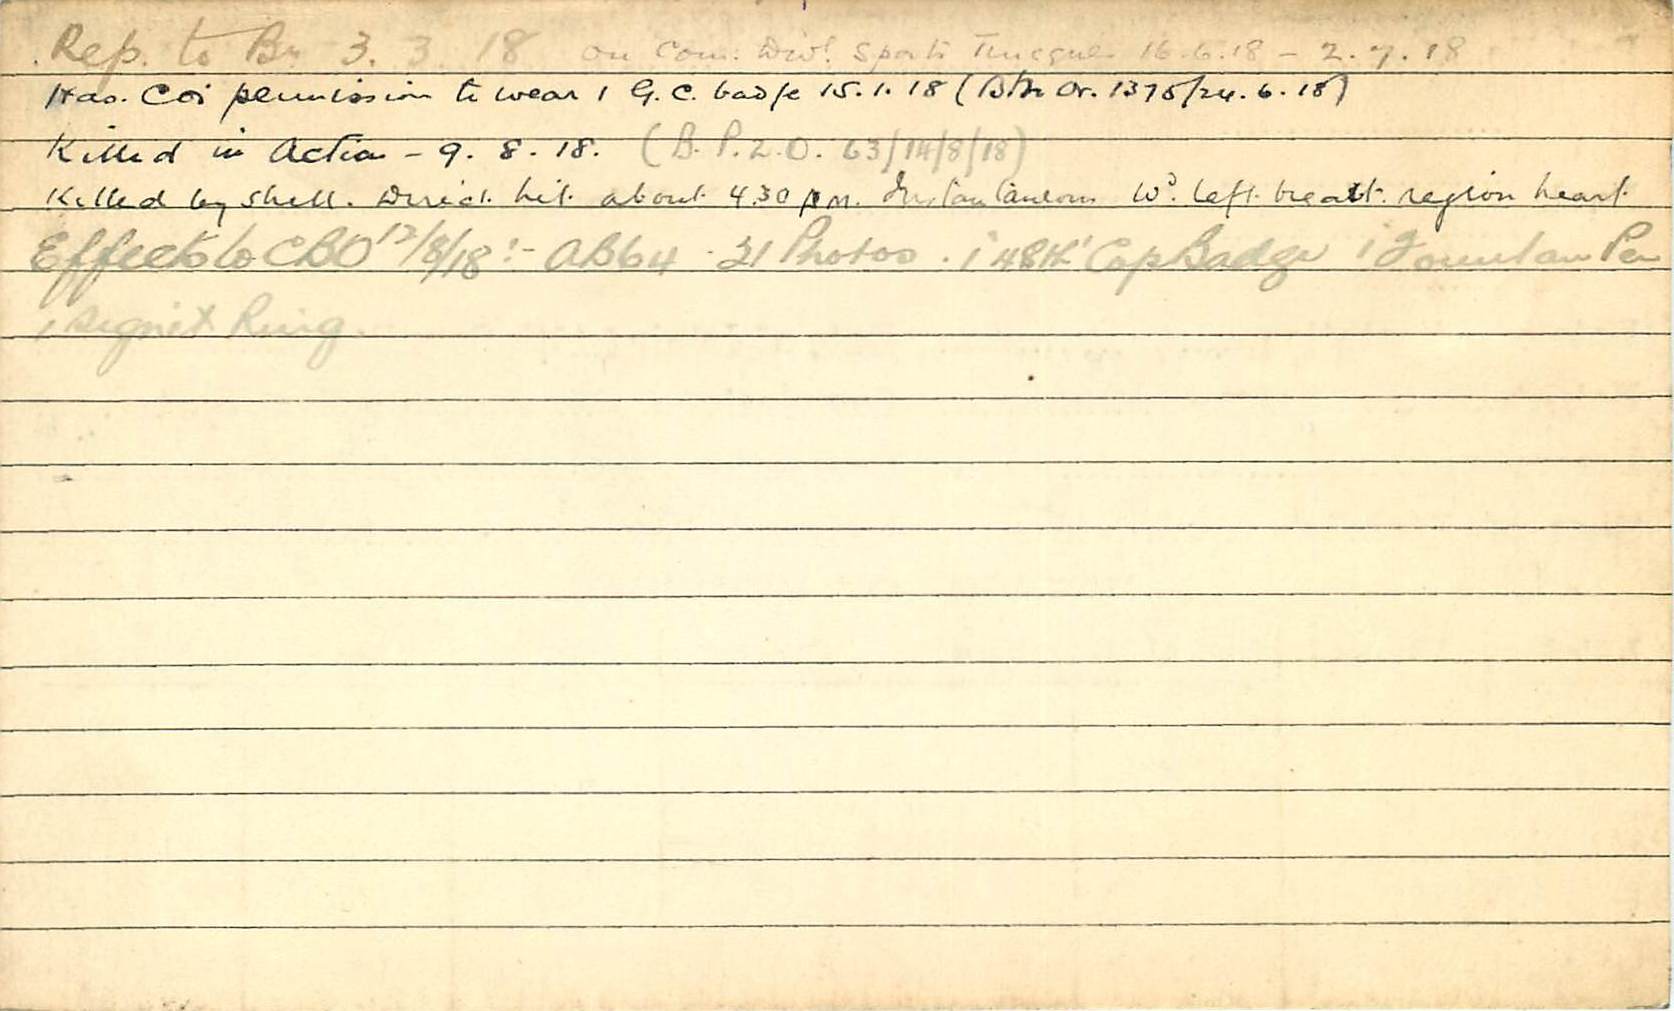 Rep. to Bn 3. 3. 18 on Com. Div! Sports Tincques 16.6.18 - 2.7.18
Has. Co's permission to wear 1 G.C. badge 15.1.18 (Bn Or. 1375/24.6.18)
Killed in Action - 9. 8. 18. (B. P.2.O. 63/14/8/18)
Killed by shell. Direct hit about 4.30 p.m. Instantaneous Wd. left breast region heart
Effects to CBO 12/8/18:- AB64 - 21 Photos. 1 '48th' Cap Badge 1 Fountain Pen
1 Signet Ring.